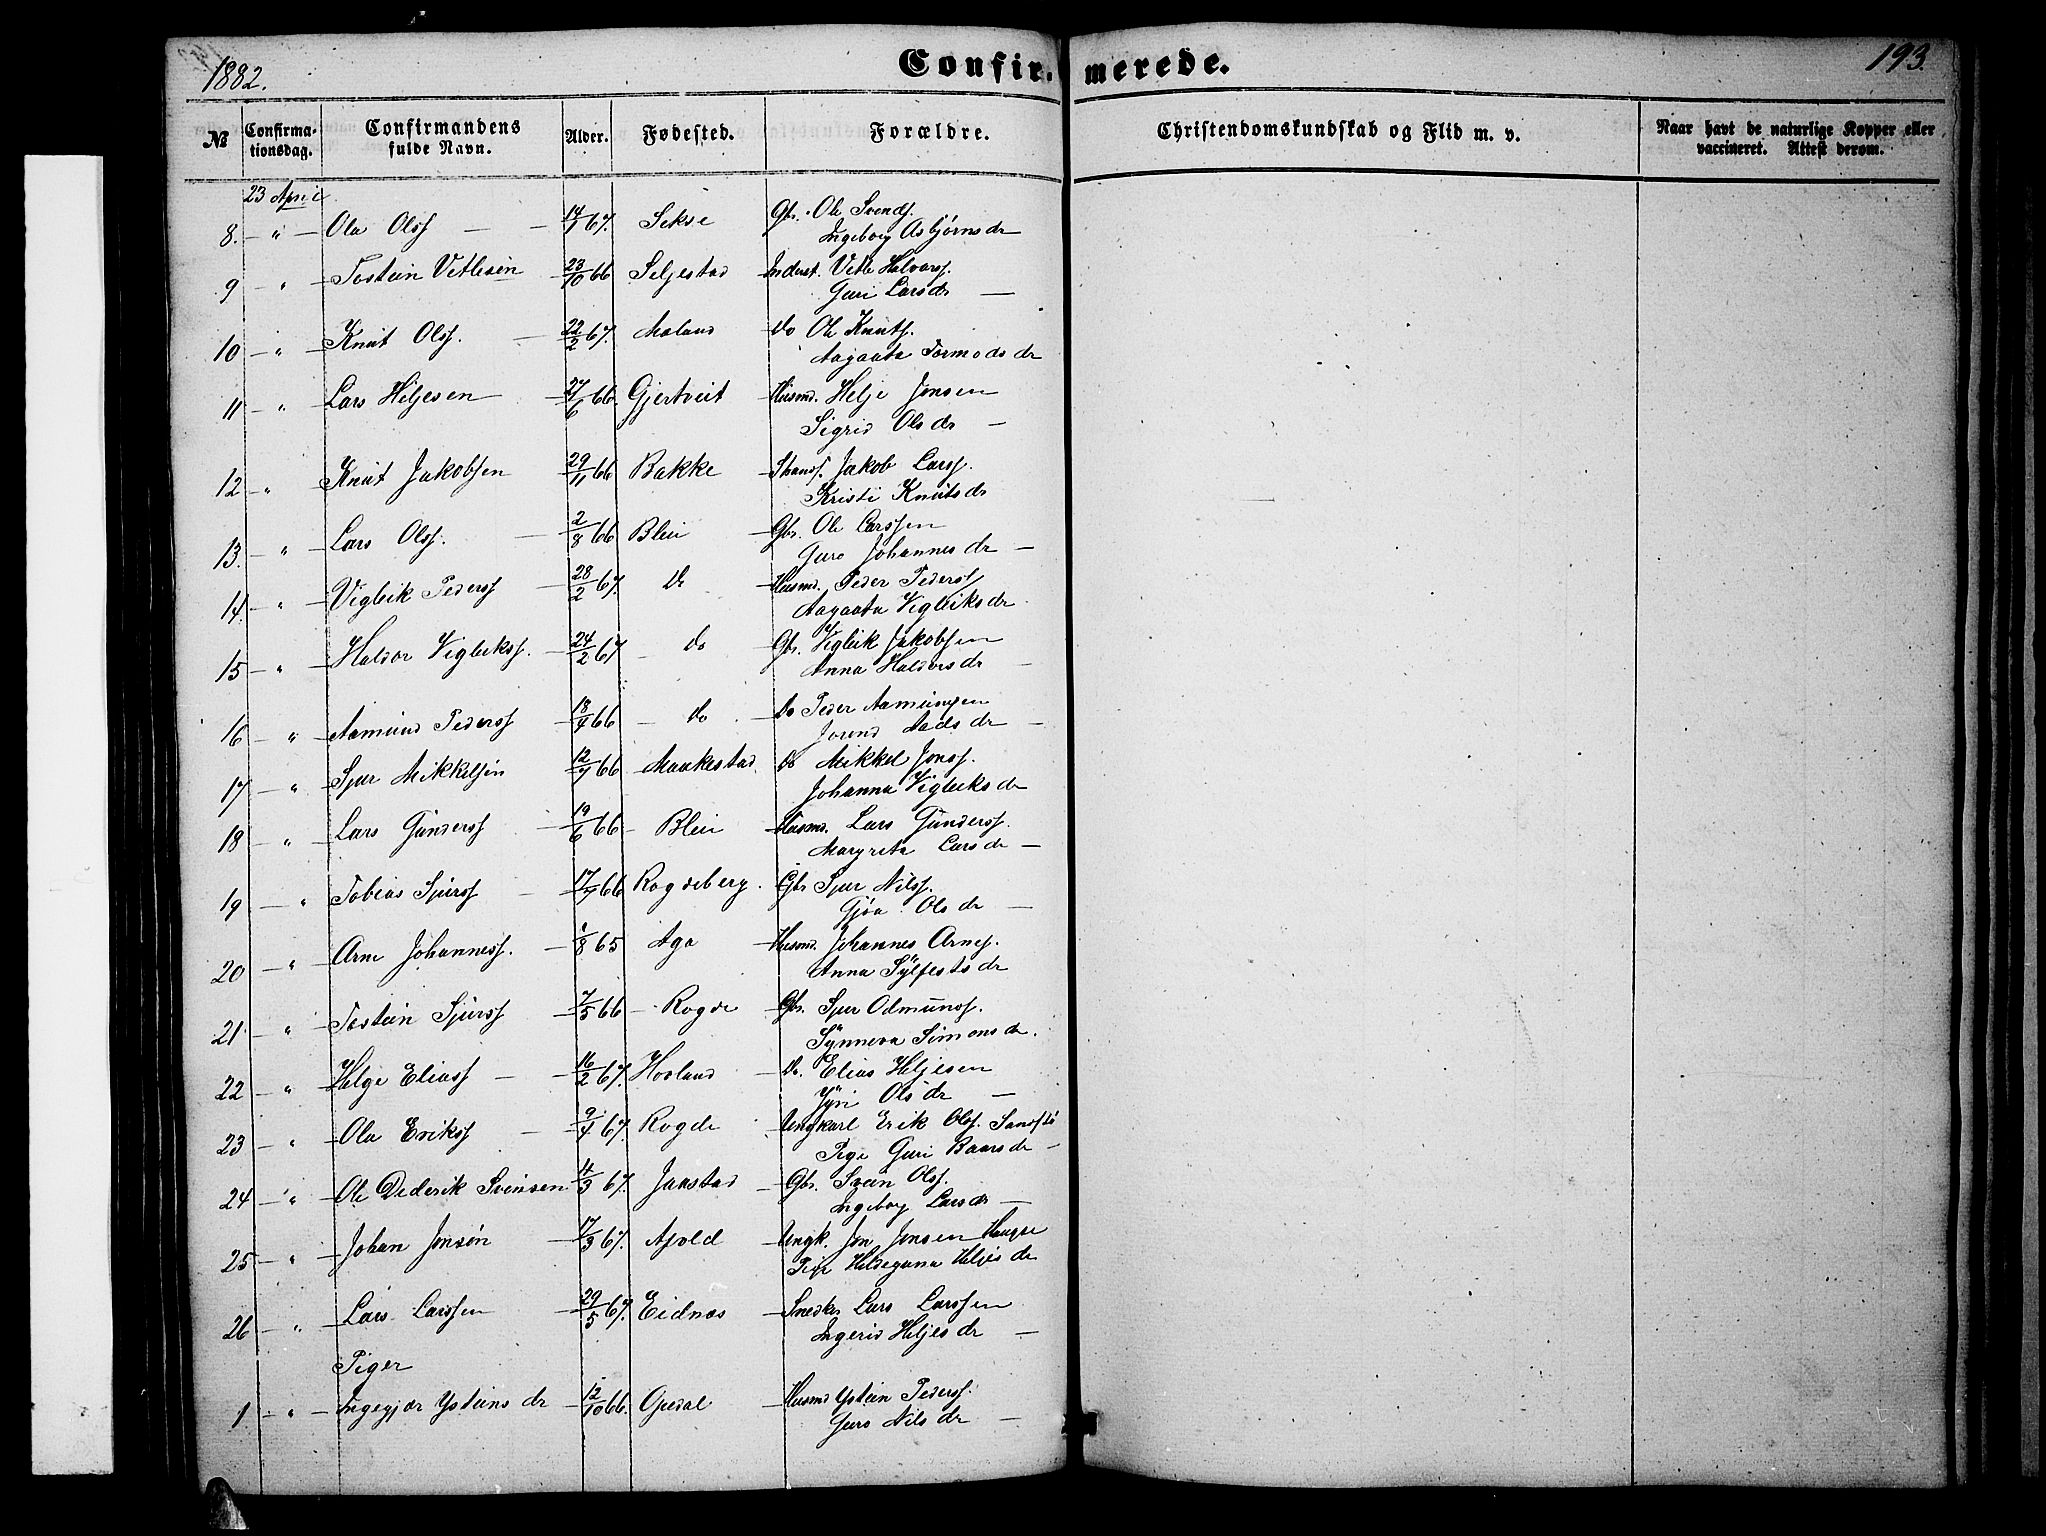 1882.
Confirmerede.
193.
№
Confirmationsdag.
Confirmandens fulde Navn.
Alder.
Fødested.
Forældre.
Christendomskundskab og Flid m. v.
Naar havt de naturlige Kopper eller vaccineret. Attest derom.
23 April
8. — " — Ola Olsf — 14/1 67. Sekse Gbr. Ole Svendsf.
Ingeborg Asbjørnsdr
9 — " — Tostein Vetlesen — 23/10 66 Seljestad Inderst. Vetle Halvorsf.
Guri Larsdr —
10 — " — Knut Olsf. — 22/2 67. Moland Do Ole Knutsf.
Aagaata Tormodsdr
11 — " — Lars Heljesen — 27/6 66. Gjertveit Husmd. Helje Jonsen
Sigrid Olsdr —
12 — " Knut Jakobsen — 29/11 66 Bakke Strands. Jakob Larsf.
Kristi Knutsdr
13. — " — Lars Olsf. — 2/8 66 Bleii — Gbr. Ole Larssen
Guro Johannesdr —
14. — " — Vigleik Pedersf — 28/2 67. Do Husmd. Peder Pedersf
Aagaata Vigleiksdr
15 — " Haldor Vigleiksf. — 24/2 67 — do Gbr. Vigleik Jakobsen
Anna Haldorsdr —
16 — " — Aamund Pedersf — 18/4 66 — do — Do Peder Aamundsen
Jorend Aadsdr —
17 — " — Sjur Mikkelsen — 12/7 66 — Maakestad. do Mikkel Jonsf.
Johanna Vigleiksdr
18 — " — Lars Gundersf — 19/6 66 — Bleii — Husmd. Lars Gundersf.
Margreta Larsdr —
19 — " — Tobias Sjursf — 17/7 66 Rogdeberg. Gbr Sjur Nilsf.
Gjøa Olsdr —
20 — " Arne Johannesf. — 1/8 65 Aga — Husmd. Johannes Arnes.
Anna Sylfestsdr
21 — " — Tostein Sjursf — 7/5 66 — Rogde — Gbr. Sjur Odmunsf.
Synneva Simonsdr.
22 — " — Helge Eliasf — 16/2 67. Hovland — Do. Elias Heljesen
Olsdr —
23 — " — Ola Eriksf — 9/4 67. Rogde — Ungkarl Erik Olsf.
Pige Guri Baarsdr —
24 — " — Ole Diderik Svensen 4/3 67. Jaastad — Gbr. Svein Olsf.
Ingeborg Larsdr —
25 — " — Johan Jonsøn — 17/3 67. Apold — Ungk. Jon Jonsen Hauge
Pige Heldegunna Heljesdr
26 — " — Lars Larssen — 29/5 67. Eidnes — Snedker Lars Larssen
Ingerid Heljesdr —
Piger
1 — " — Ingegjær Ysteinsdr — 12/10 66. Opedal — Husmd Ystein Pedersf.
Guro Nilsdr —